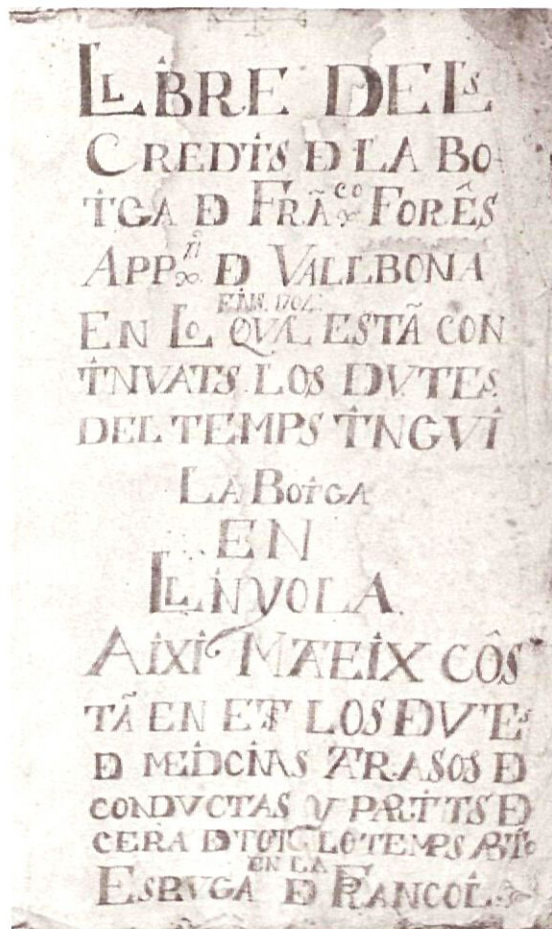 LLIBRE DELS
CREDITS DE LA BO
TIGA DE FRÃco FORÊS
APPri DE VALLBONA
EN LO QVAL ESTÃ CON
TINVATS LOS DEVTES
DEL TEMPS TINGVI
LA BOTIGA
EN
LLINYOLA
AIXI MATEIX CÔS
TÃ EN ELL LOS DEVTES
DE MEDICINAS ATRASOS DE
CONDVCTAS Y PARTITS DE
CERA DE TOT LO TEMPS
EN LA
ESPVGA DE FRANCOLI